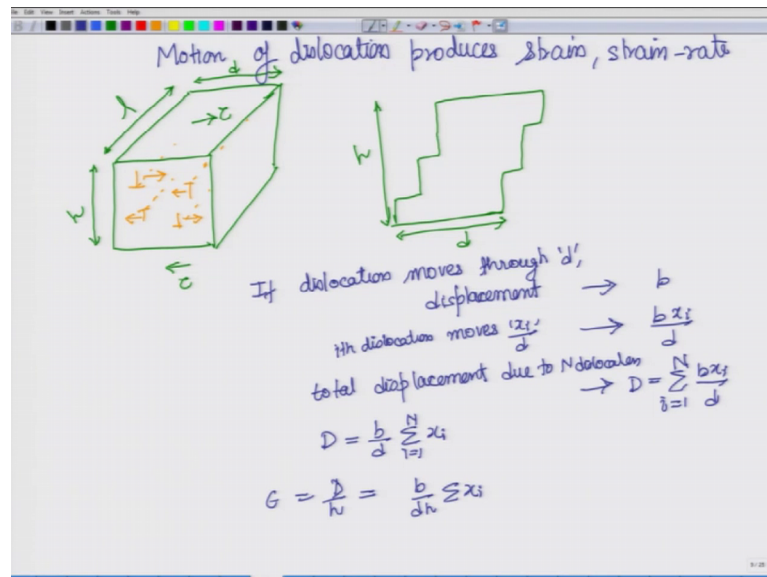 File Edit View Insert Actions Tools Help
Motion of dislocation produces strain, strain-rate
d
l
→ τ
h
← τ
h
d
If dislocation moves through 'd',
displacement → b
ith dislocation moves 'xi'/d → bxi/d
total displacement due to N dislocation
→ D = Σ_{i=1}^{N} bxi/d
D = b/d Σ_{i=1}^{N} xi
ε = D/h = b/dh Σxi